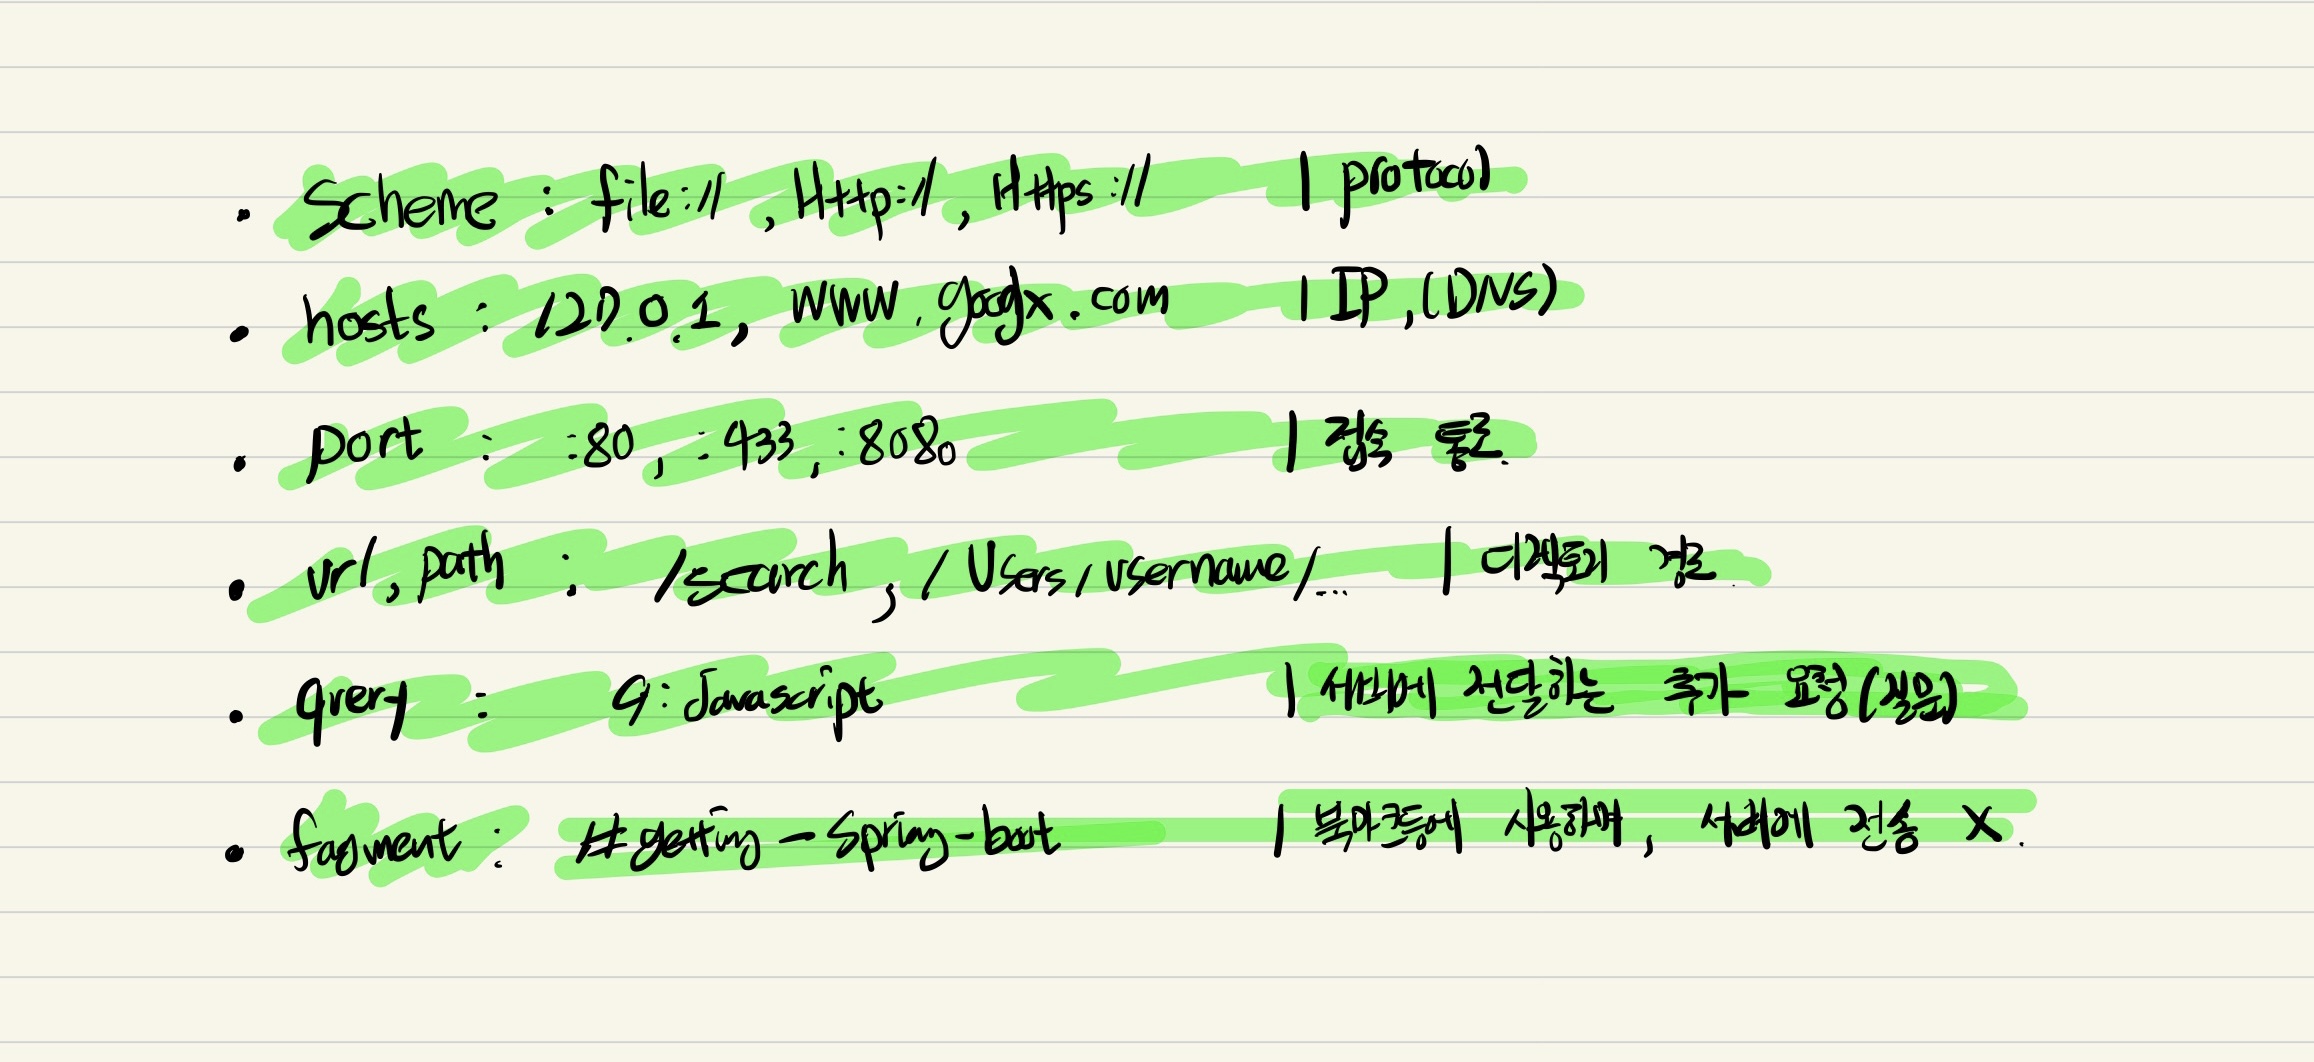 • Scheme : file://, Http://, Https:// | protocol
• hosts : 127.0.1, www. .com | IP, (DNS)
• port : :80, :433, :8080 | 접속 통로.
• url, path : /search, /Users/username/... | 디렉토리 경로.
• qrery : q: Javascript | 서버에 전달하는 추가 요청(질문)
• fagment : #getting-spring-boot | 북마크등에 사용하며, 서버에 전송 X.